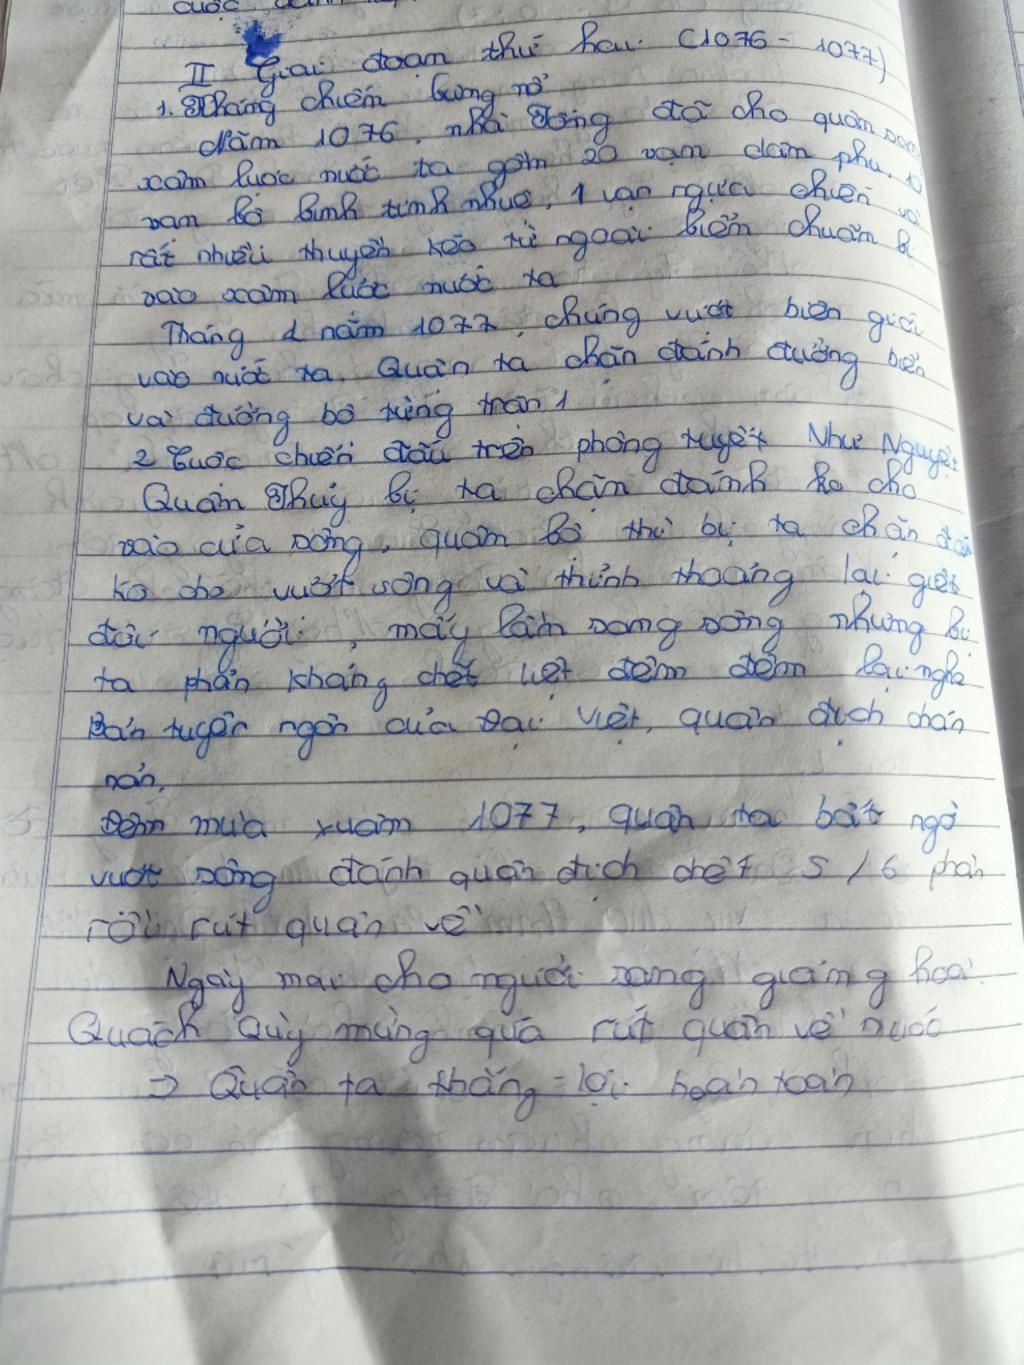 cuộc
II Giai đoạn thứ hai (1076 - 1077)
1. Kháng chiến bùng nổ
Năm 1076, nhà Tống đã cho quân sang
xâm lược nước ta gồm 20 vạn dân phu, 10
vạn bộ binh tinh nhuệ, 1 vạn ngựa chiến và
rất nhiều thuyền kéo từ ngoài biển chuẩn bị
vào xâm lược nước ta
Tháng 1 năm 1077, chúng vượt biên giới
vào nước ta. Quân ta chặn đánh đường biển
và đường bộ từng trận 1
2 Cuộc chiến đấu trên phòng tuyến Như Nguyệt
Quân Thủy bị ta chặn đánh ko cho
vào cửa sông, quân bộ thì bị ta chặn
ko cho vượt sông và thỉnh thoảng lại giết
đôi người, mấy lần sang sông nhưng bị
ta phản kháng chết liệt đêm đêm lại nghe
bản tuyên ngôn của Đại Việt, quân địch chán
nản.
Đêm mùa xuân 1077, quân ta bất ngờ
vượt sông đánh quân địch chết 5/6 phần
rồi rút quân về
Ngày mai cho người sang giảng hoà
Quách Quỳ mừng quá rút quân về nước
=> Quân ta thắng lợi hoàn toàn